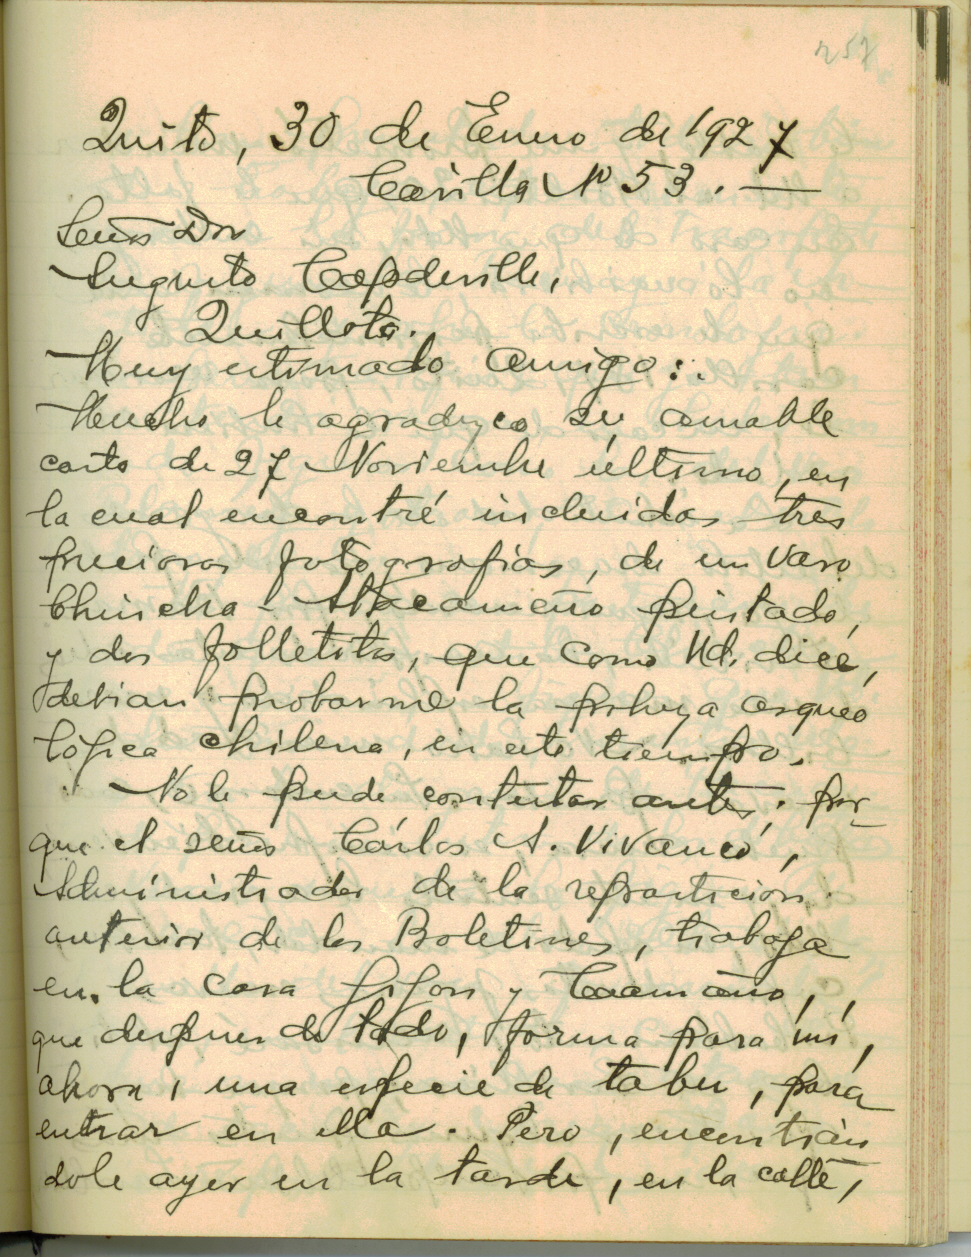 257
Quito, 30 de Enero de 1927
Casilla No 53. —
Señor Don
Augusto Capdeville,
Quillota.
Muy estimado amigo:.
Mucho le agradezco su amable
carta de 27 Noviembre último, en
la cual encontré incluidas tres
preciosas fotografias, de un vaso
Chincha-Atacameño pintado,
y dos folletitos, que como Ud. dice,
debian probarme la proliga arqueo
lójica chilena, en este tiempo.
No le pude contestar antes, por-
que el señor Cárlos A. Vivanco,
Administrador de la reparticion
anterior de los Boletines, trabaja
en la casa Jijon y Caamaño,
que despues de todo, forma para mí,
ahora, una especie de tabu, para
entrar en ella. Pero, encontrán
dole ayer en la tarde, en la calle,